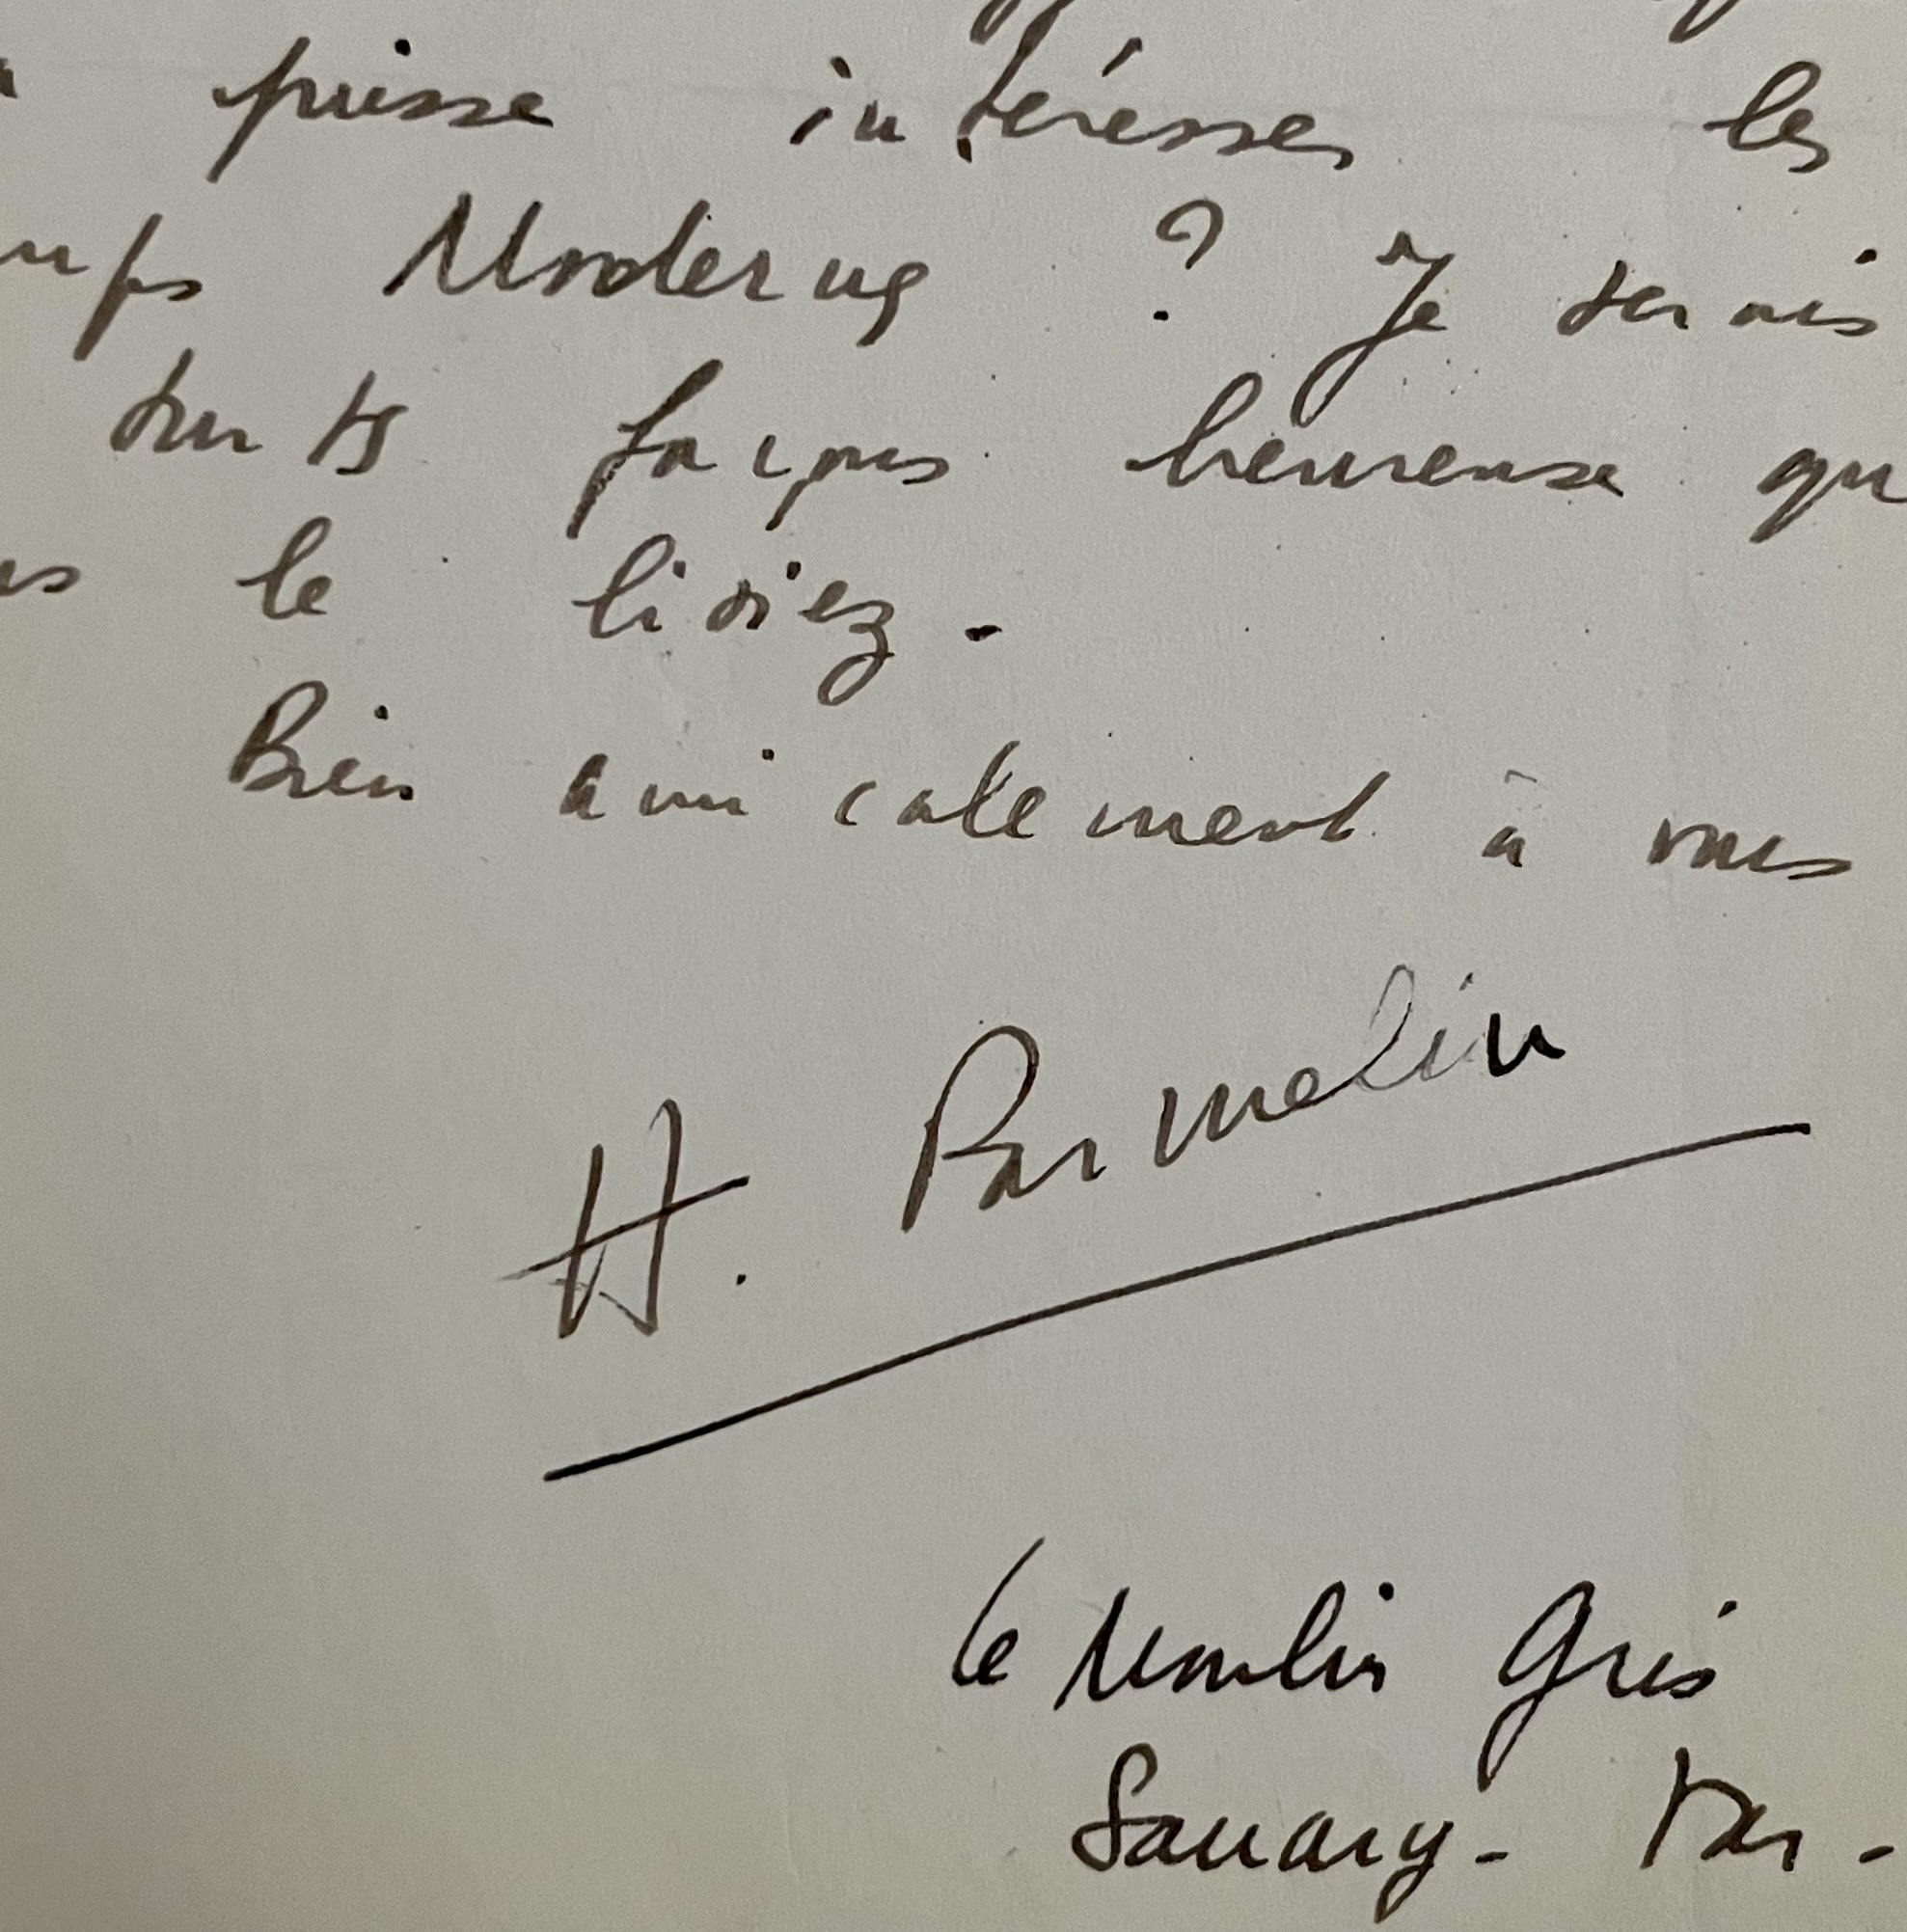 puisse intéresser les
mps Modernes ? Je serais
de toutes façons heureuse qu
us le lisiez.
Bien amicalement à vous
H. Parmelin
le Moulin Gris
Sanary - Var -